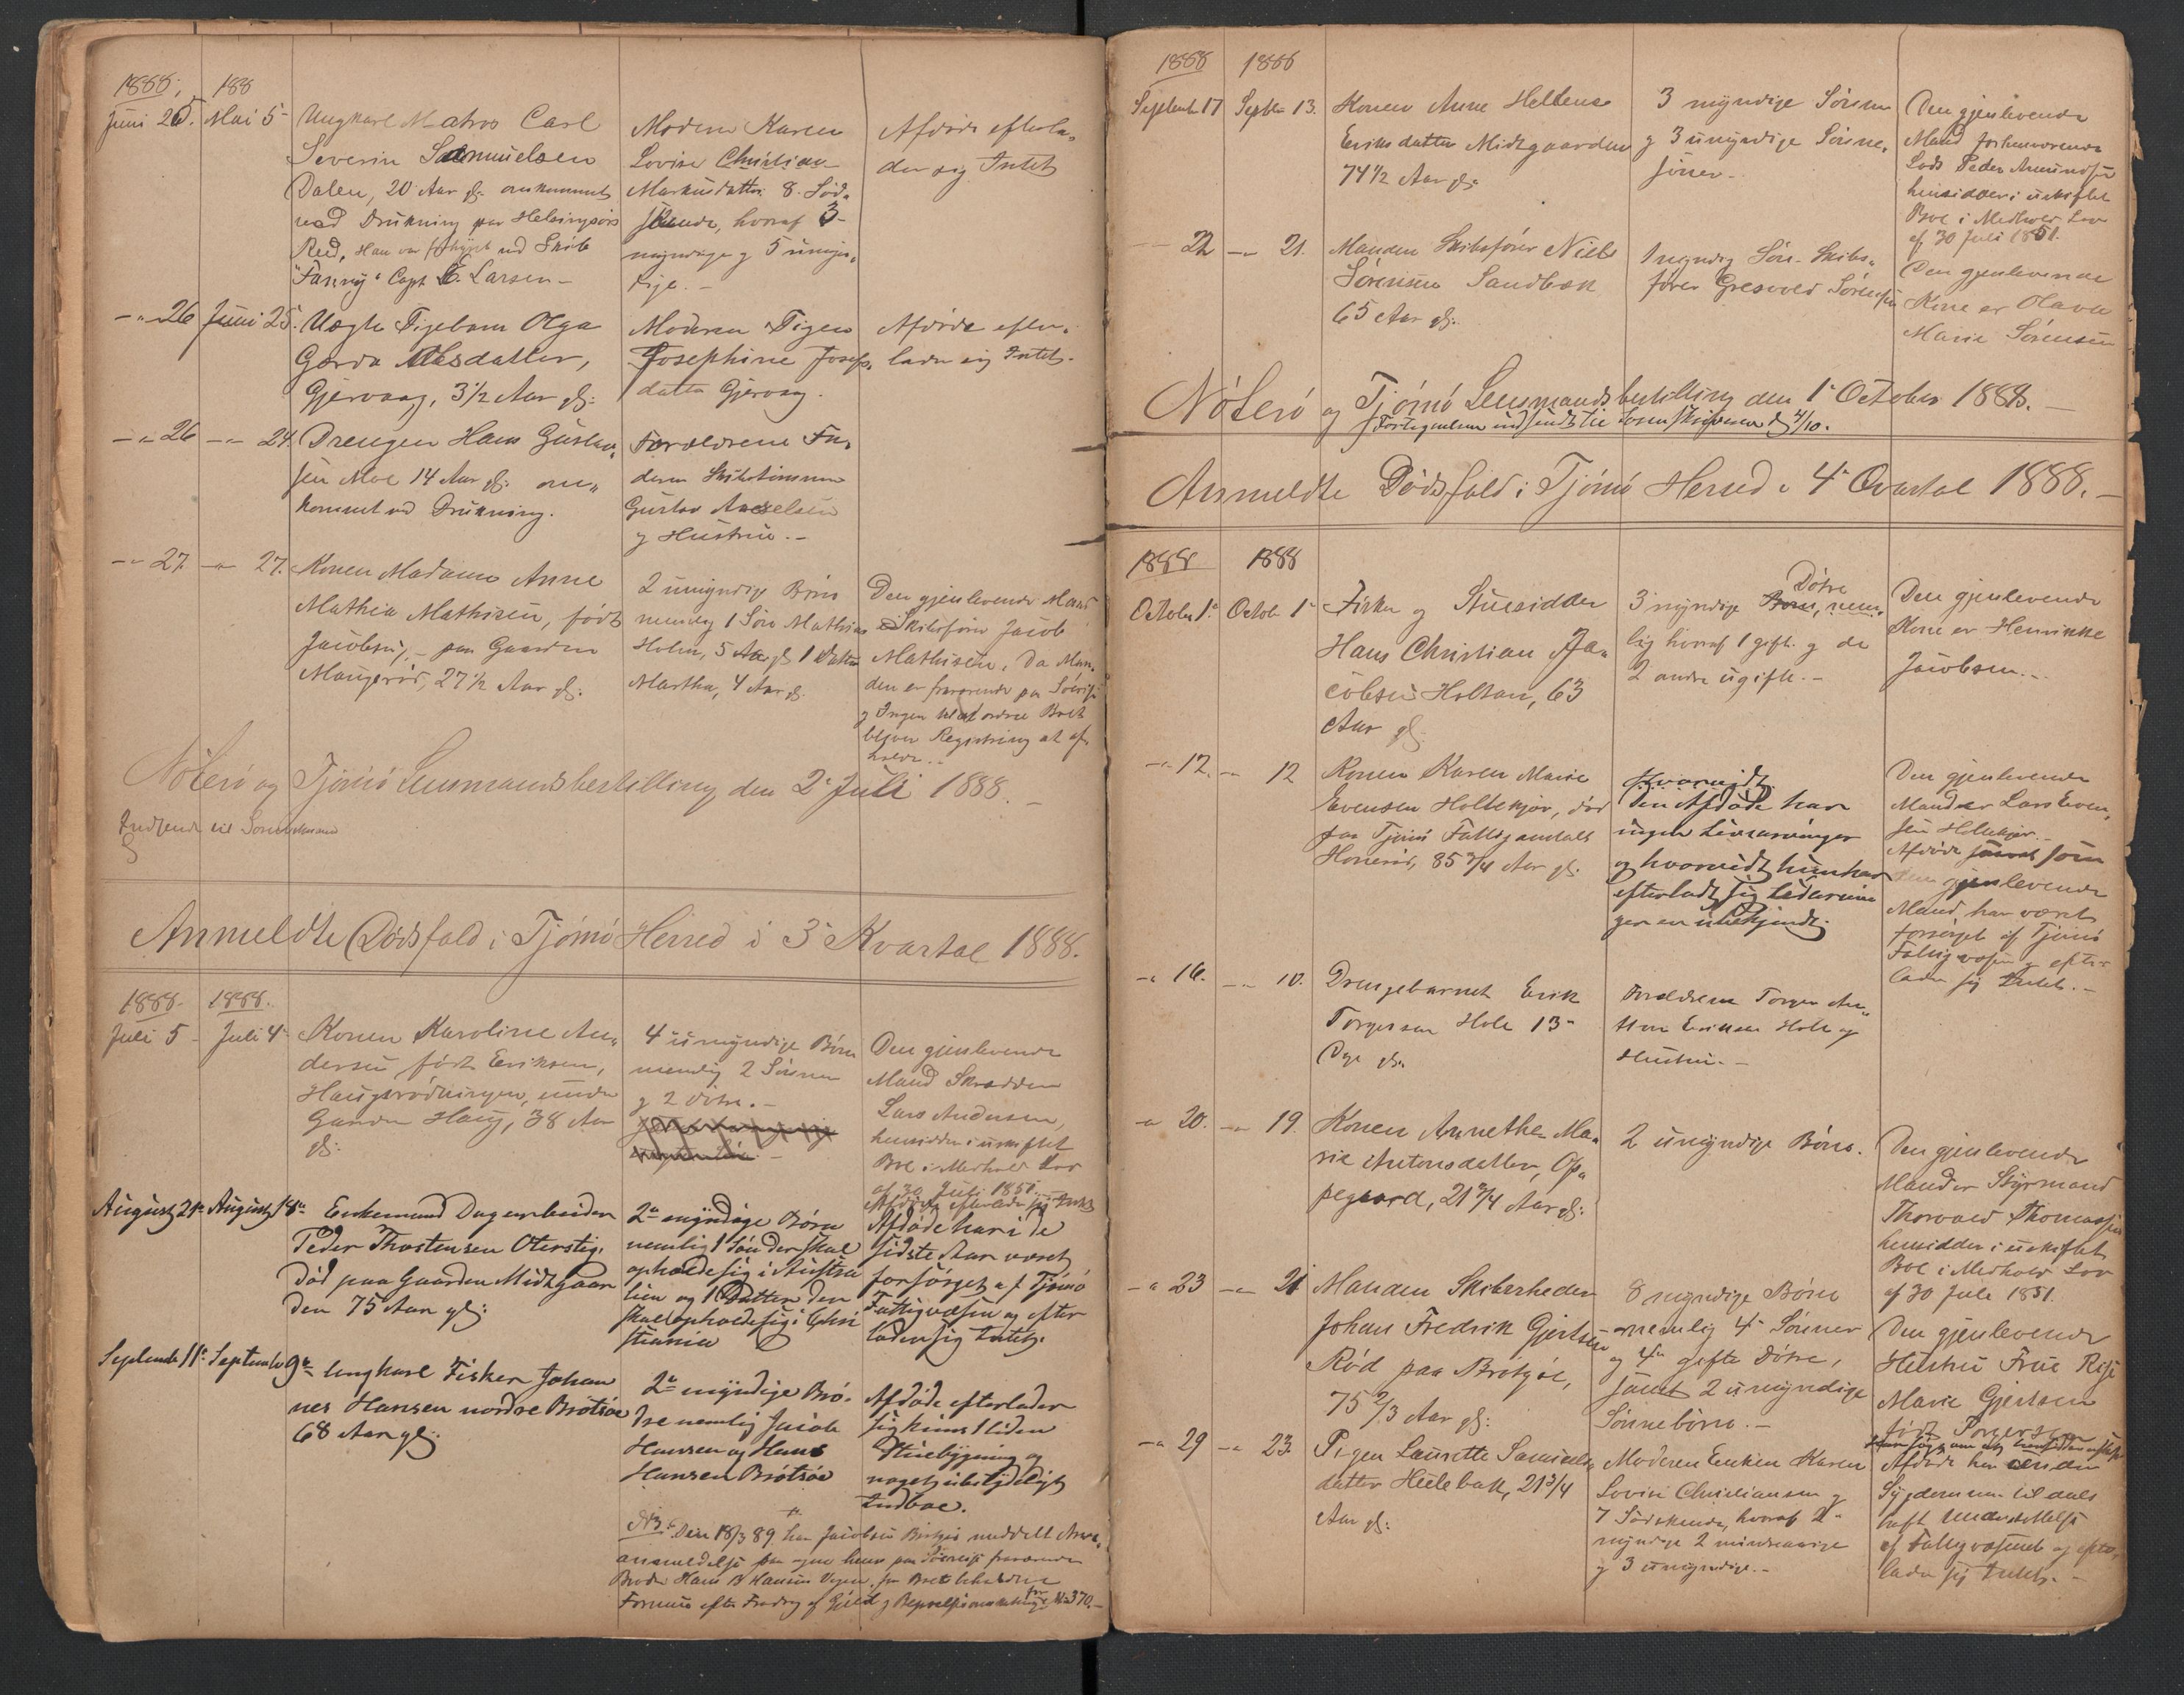 1888. 188
Juni 25. Mai 5 Ungkarl Matros Carl
Severin Samuelsen
Dalen, 20 Aar gl: omkommet
ved Drukning paa Helsingørs
Red, Han var forhyret med Skib
"Fanny" Capt. E. Larsen -
Moderen Karen
Lovise Christian
Markusdatter 8 Sød-
skende, hvoraf 3
myndige g 5 umyn-
dige. -
Afdøde efterla-
der sig Intet
-"- 26 Juni 25. Uægte Pigebarn Olga
Gerda Olsdatter,
Gjervaag, 3 1/2 Aar gl:
Moderen Pigen
Josephine Josefs-
datter Gjervaag.
Afdøde efter-
lader sig Intet.
-"- 26 -"- 24. Drengen Hans Gustav-
sen Moe 14 Aar gl: om-
kommet ved Drukning.
Forældrene Fa-
deren Skibstømmer
Gustav Axelsen
g Hustru. -
-"- 27. -"- 27. Konen Madame Anne
Mathea Mathisen, født
Jacobsen, - paa Gaarden
Maugerød, 27 1/2 Aar gl:
2 umyndige Børn
nemlig 1 Søn Mathias
Holm, 5 Aar gl 1 Datter
Martha, 4 Aar gl.
Den gjenlevende Mand
er Skibsfører Jacob
Mathisen. Da Man-
den er fraværende paa Søreise
g Ingen til at ordne Boet
bliver Registrering at af-
holde. -
Nøterø og Tjømø Lensmandsbestilling den 2 Juli 1888. -
Indsendt til Sorenskriveren
Anmeldte Dødsfald i Tjømø Herred i 3 Kvartal 1888.
1888. 1888.
Juli 5 Juli 4 Konen Karoline An-
dersen født Eriksen,
Haugsrødningen, under
Gaarden Haug, 38 Aar
gl:
4 umyndige Børn
nemlig 2 Sønner
g 2 Døtre. -
Den gjenlevende
Mand Skrædder
Lars Andersen,
hensidder i uskiftet
Boe i Medhold Lov
af 30 Juli 1851. -
Afdøde efterlader sig Intet
August 21 August 18 Enkemand Dagarbeider
Peder Thostensen Oterstig.
død paa Gaarden Midtgaar
den 75 Aar gl:
2 myndige Børn
nemlig 1 Søn der skal
opholde sig i Austra
lien og 1 Datter der
skal opholde sig i Chri
stiania
Afdøde har i de
sidste Aar været
forsørget af Tjømø
Fattigvæsen og efter
lader sig Intet.
September 11 September 9 Ungkarl Fisker Johan
nes Hansen nordre Brøtsøe
68 Aar gl:
2 myndige Brø-
dre nemlig Jacob
Hansen og Hans
Hansen Brøtsøe
Afdøde efterlader
sig kuns 1 liden
Stuebygning og
noget ubetydeligt
Indboe.
NB. Den 18/3 89 har Jacobsen meddelt
anmeldelse paa egne paa Søreise fraværende
Broder Hans B Hansens Vegne, for Boets beholdne
Formue efter Fradrag af Gjæld g for Kr 370. -
1888 1888
Septemb 17 Septbr 13. Konen Anne Heltene
Eriksdatter Midtgaarden
74 1/2 Aar gl:
3 myndige Sønner
g 3 umyndige Sønne-
sønner -
Den gjenlevende
Mand forhenværende
Lods Peder Amundsen
hensidder i uskiftet
Boe i Medhold Lov
af 30 Juli 1851.
-"- 22 -"- 21. Manden Skibsfører Niels
Sørensen Sandbæk
65 Aar gl:
1 myndig Søn - Skibs-
fører Gresvold Sørensen
Den gjenlevende
Kone er Olava
Marie Sørensen
Nøterø og Tjømø Lensmandsbestilling den 1 October 1888. -
Fortegnelsen indsendt til Sorenskriveren d 4/10.
Anmeldte Dødsfald i Tjømø Herred i 4 Qvartal 1888. -
1888 1888
October 1 Octob 1 Fisker og Stuesidder
Hans Christian Ja-
cobsen Holtan, 63
Aar gl:
3 myndige Døtre, nem-
lig hvoraf 1 gift g de
2 andre ugifte. -
Den gjenlevende
Kone er Henrikke
Jacobsen. -
-"- 12. -"- 12 Konen Karen Marie
Evensen Holtekjær, død
paa Tjømø Fattiganstalt
Honerød, 85 3/4 Aar gl:
Hvorvidt
den Afdøde har
ingen Livsarvinger
og hvorvidt hun har
efterladt sig Udarvin
ger er ubekjendt.
Den gjenlevende
Mand er Lars Even-
sen Holtekjær. -
Afdøde samt som
den gjenlevende
Mand, har været
forsørget af Tjømø
Fattigvæsen g efter-
lader sig Intet. -
-"- 16. -"- 10. Drengebarnet Erik
Torgersen Hole 13
Dge gl:
Forældrene Torger An-
ton Eriksen Hole og
Hustru. -
-"- 20. -"- 19. Konen Annethe Ma-
rie Antonsdatter, Op-
pegaard, 21 3/4 Aar gl:
2 umyndige Børn.
Den gjenlevende
Mand er Styrmand
Thorvald Thomassen
hensidder i uskiftet
Boe i Medhold Lov
af 30 Juli 1851.
-"- 23 -"- 21 Manden Skibsrheder
Johan Fredrik Gjertsen
Rød paa Brøtsøe,
75 2/3 Aar gl:
8 myndige Børn
nemlig 4 Sønner
og 4 gifte Døtre,
samt 2 umyndige
Sønnebørn. -
Den gjenlevende
Hustru Frue
Marie Gjertsen
født Torgersen
-"- 29 -"- 23. Pigen Laurette Samuels-
datter Heelebæk, 21 3/4
Aar gl:
Moderen Enken Karen
Lovise Christiansen g
7 Sødskende, hvoraf 2
myndige 2 mindreaarige
g 3 umyndige. -
Afdøde har under
Sygdommen til dels
havt Understøttelse
af Fattigvæsenet og efter-
lader sig Intet. -